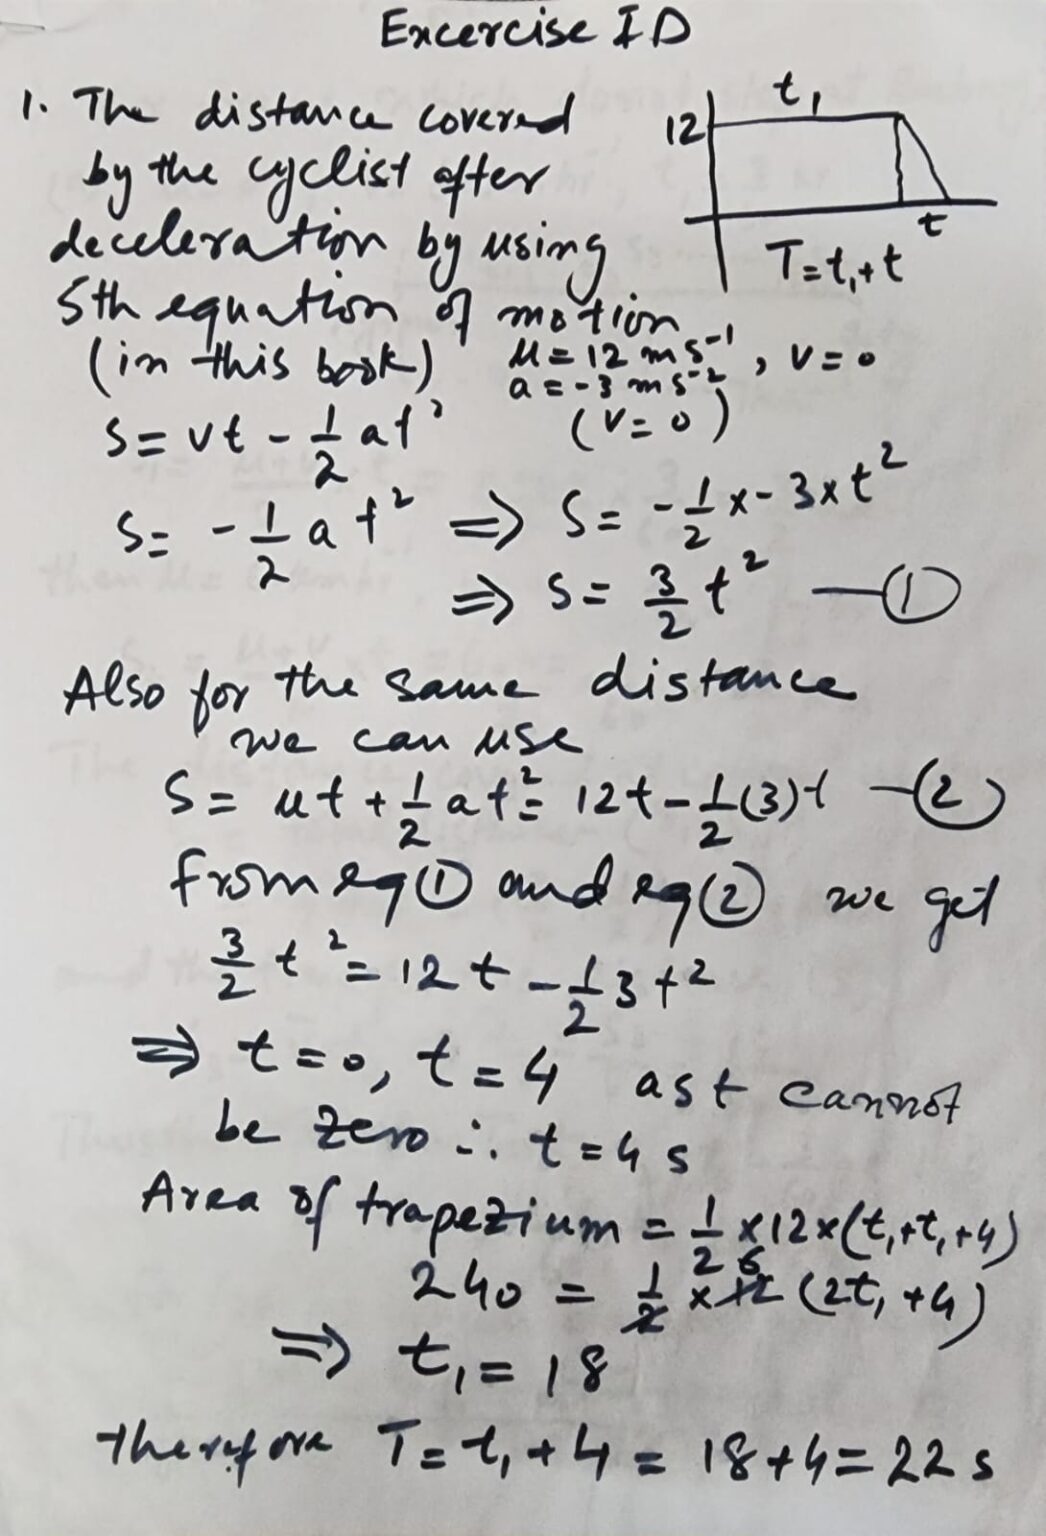 Excercise 1D
1. The distance covered
by the cyclist after
deceleration by using
5th equation of motion
(in this book)
t₁
12
t
T=t₁+t
u=12 ms⁻¹, v=0
a=-3 ms⁻²
(v=0)
S= vt - 1/2 at²
S= - 1/2 a t² ⇒ S= - 1/2 x - 3xt²
⇒ S= 3/2 t² —①
Also for the same distance
we can use
S= ut + 1/2 at² = 12t - 1/2 (3)t —②
from eq① and eq② we get
3/2 t² = 12t - 1/2 3t²
⇒ t=0, t=4 as t cannot
be zero ∴ t=4 s
Area of trapezium = 1/2 x12x(t₁+t₁+4)
240 = 1/2 x 12 6 (2t₁+4)
⇒ t₁= 18
therefore T= t₁+4 = 18+4= 22 s